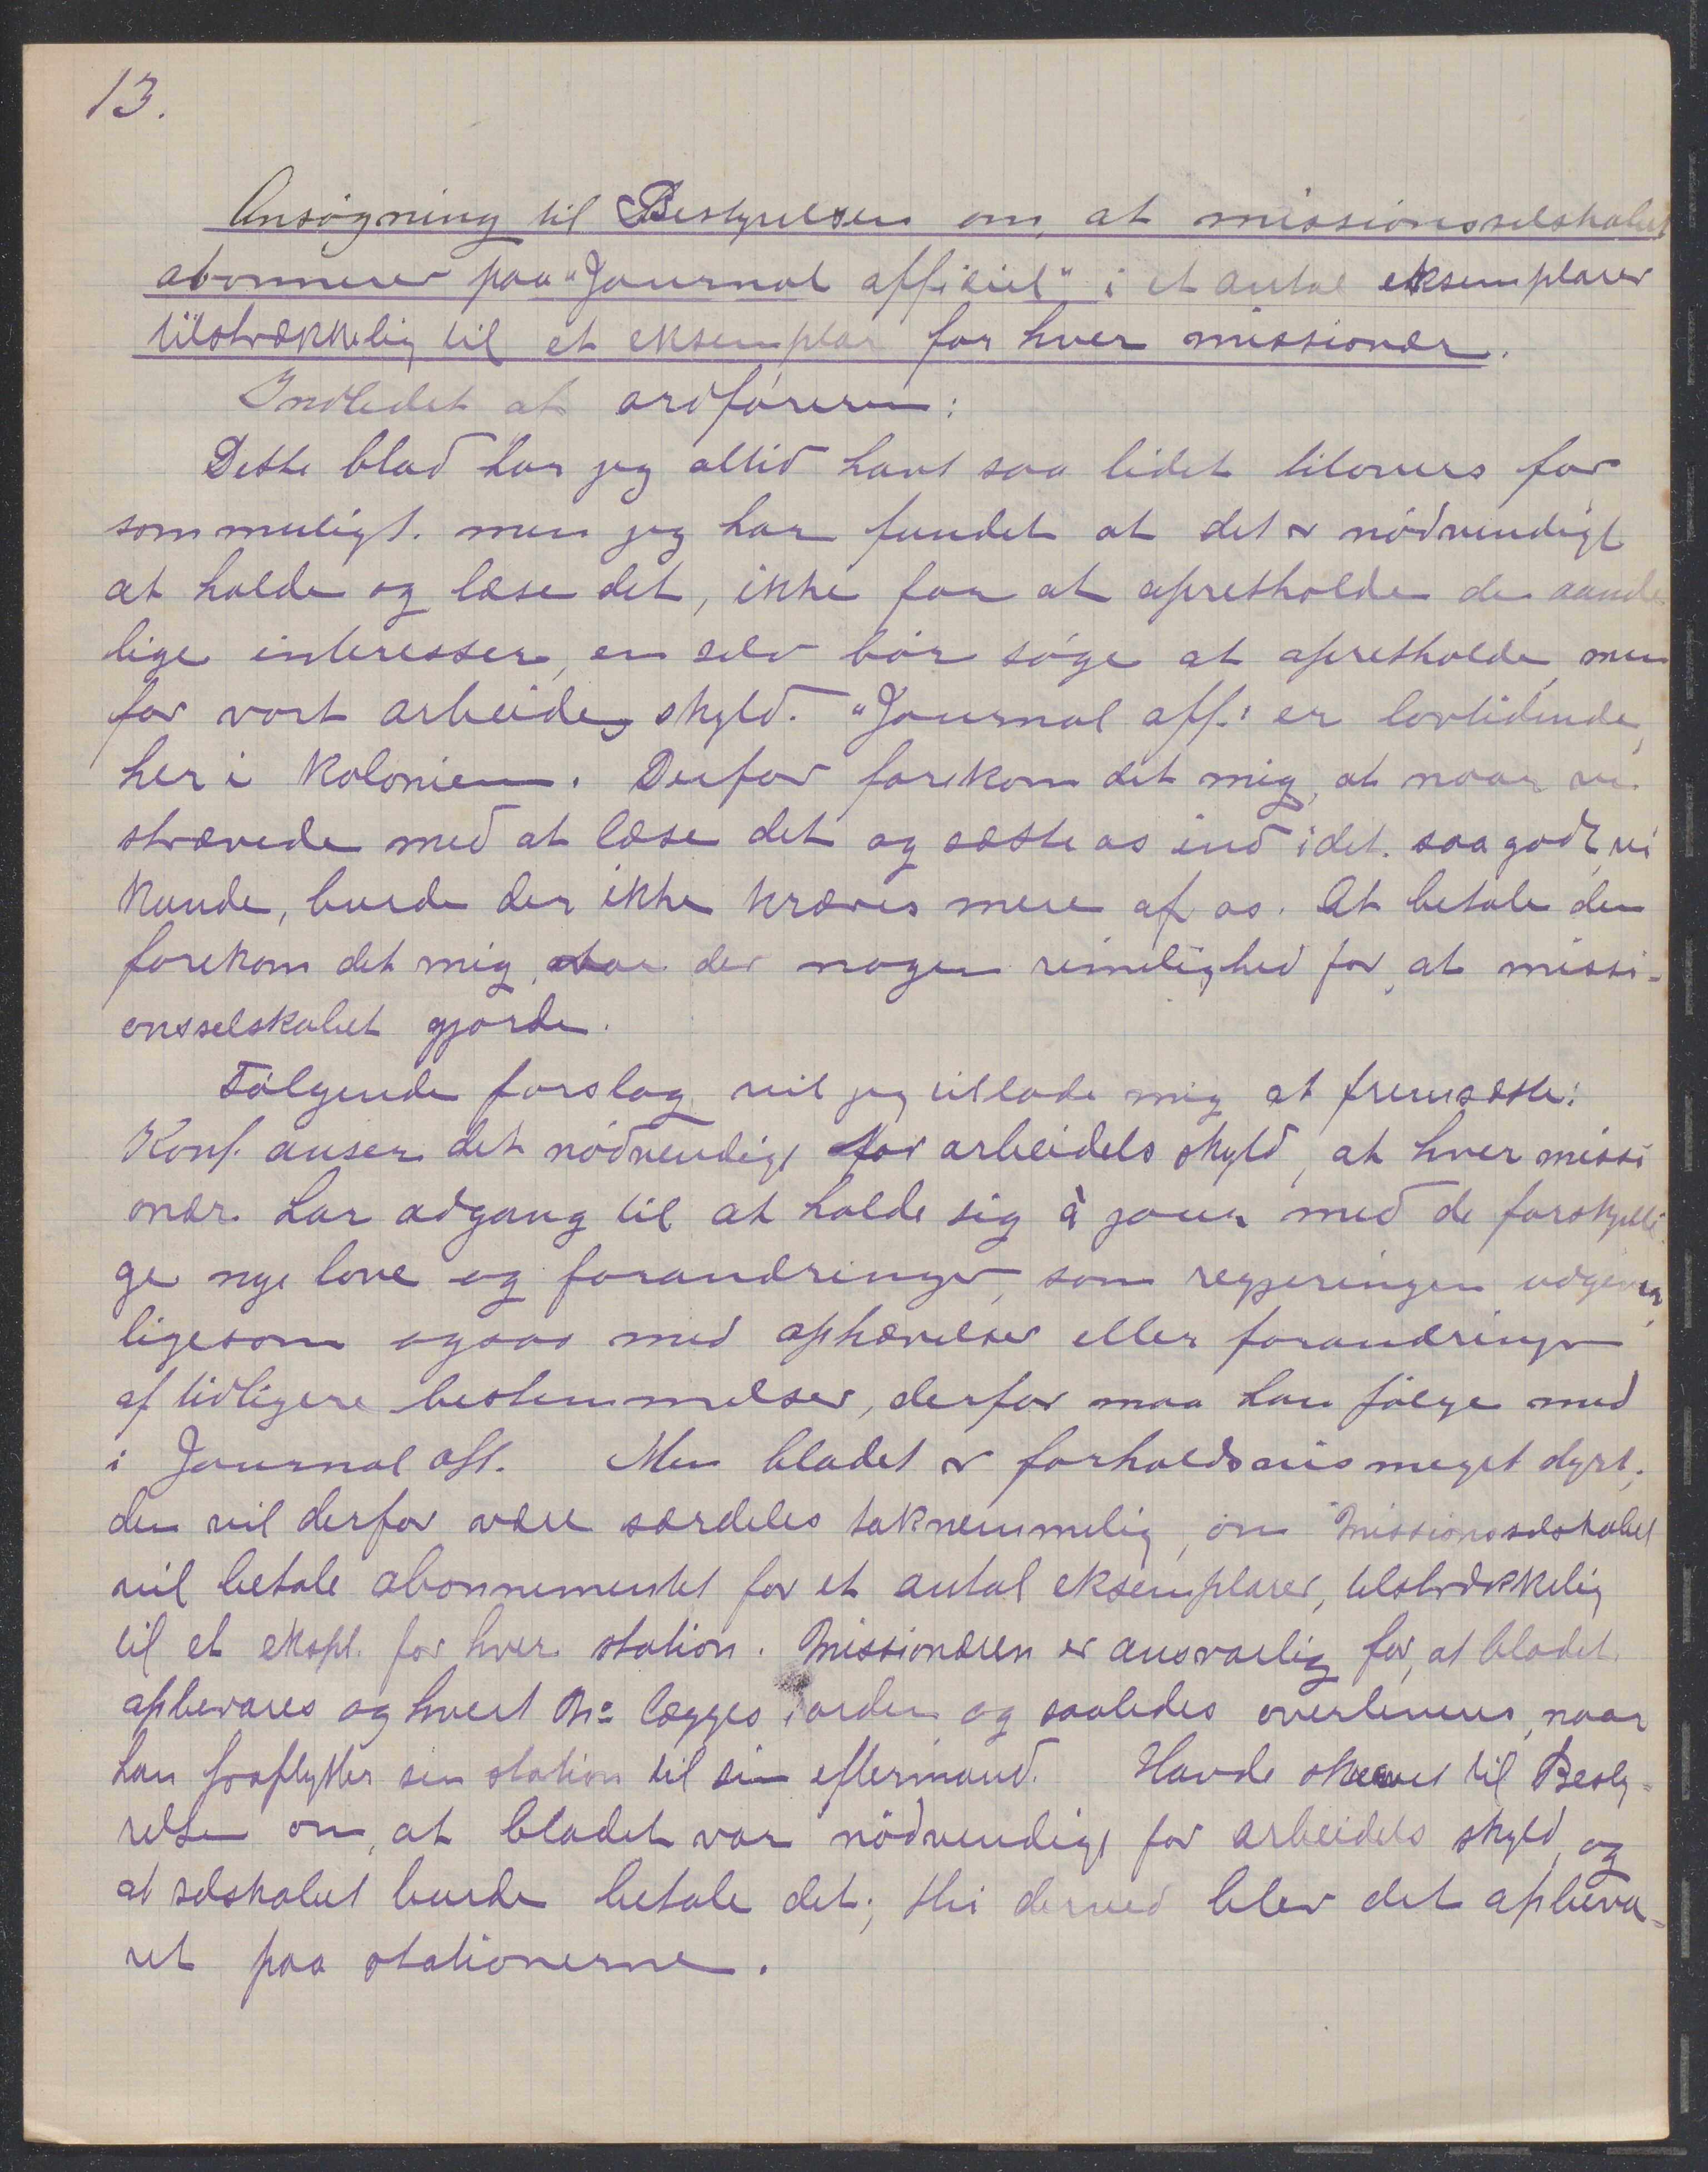 13.
Ansøgning til Bestyrelsen om, at missionsselskabet
abonnerer paa "Journal officiel" i et antal eksemplarer
tilstrækkelig til et eksemplar for hver missionær.
Indledet af ordføreren:
Dette blad har jeg altid havt saa lidet tilovers for
som muligt. men jeg har fundet at det er nødvendigt
at holde og læse det, ikke for at opretholde de aande
lige interesser, en selv bør søge at opretholde, men
for vort arbeides skyld. "Journal off." er lovtidende
her i kolonien. Derfor forekom det mig, at naar vi
strævede med at læse det og sætte os ind i det. saa godt vi
kunde, burde der ikke kræves mere af os. At betale den
forekom det mig, var der nogen rimelighed for, at missi-
onsselskabet gjorde.
Følgende forslag vil jeg tillade mig at fremsætte:
Konf. anser det nødvendigt for arbeidets skyld, at hver missi
onær har adgang til at holde sig à jour med de forskjelli
ge nye love og forandringer, som regjeringen udgiver,
ligesom ogsaa med ophævelser eller forandringer
af tidligere bestemmelser, derfor maa han følge med
i Journal off. Men bladet er forholdsvis meget dyrt;
den vil derfor være særdeles taknemmelig, om missionsselskabet
vil betale abonnementet for et antal eksemplarer, tilstrækkelig
til et ekspl. for hver station. Missionæren er ansvarlig for, at bladet
opbevares og hvert No lægges i orden og saaledes overleveres, naar
han fraflytter sin station til sin eftermand. Havde skrevet til Besty-
relsen om, at bladet var nødvendigt for arbeidets skyld, og
at selskabet burde betale det; thi derved blev det opbeva-
ret paa stationerne.